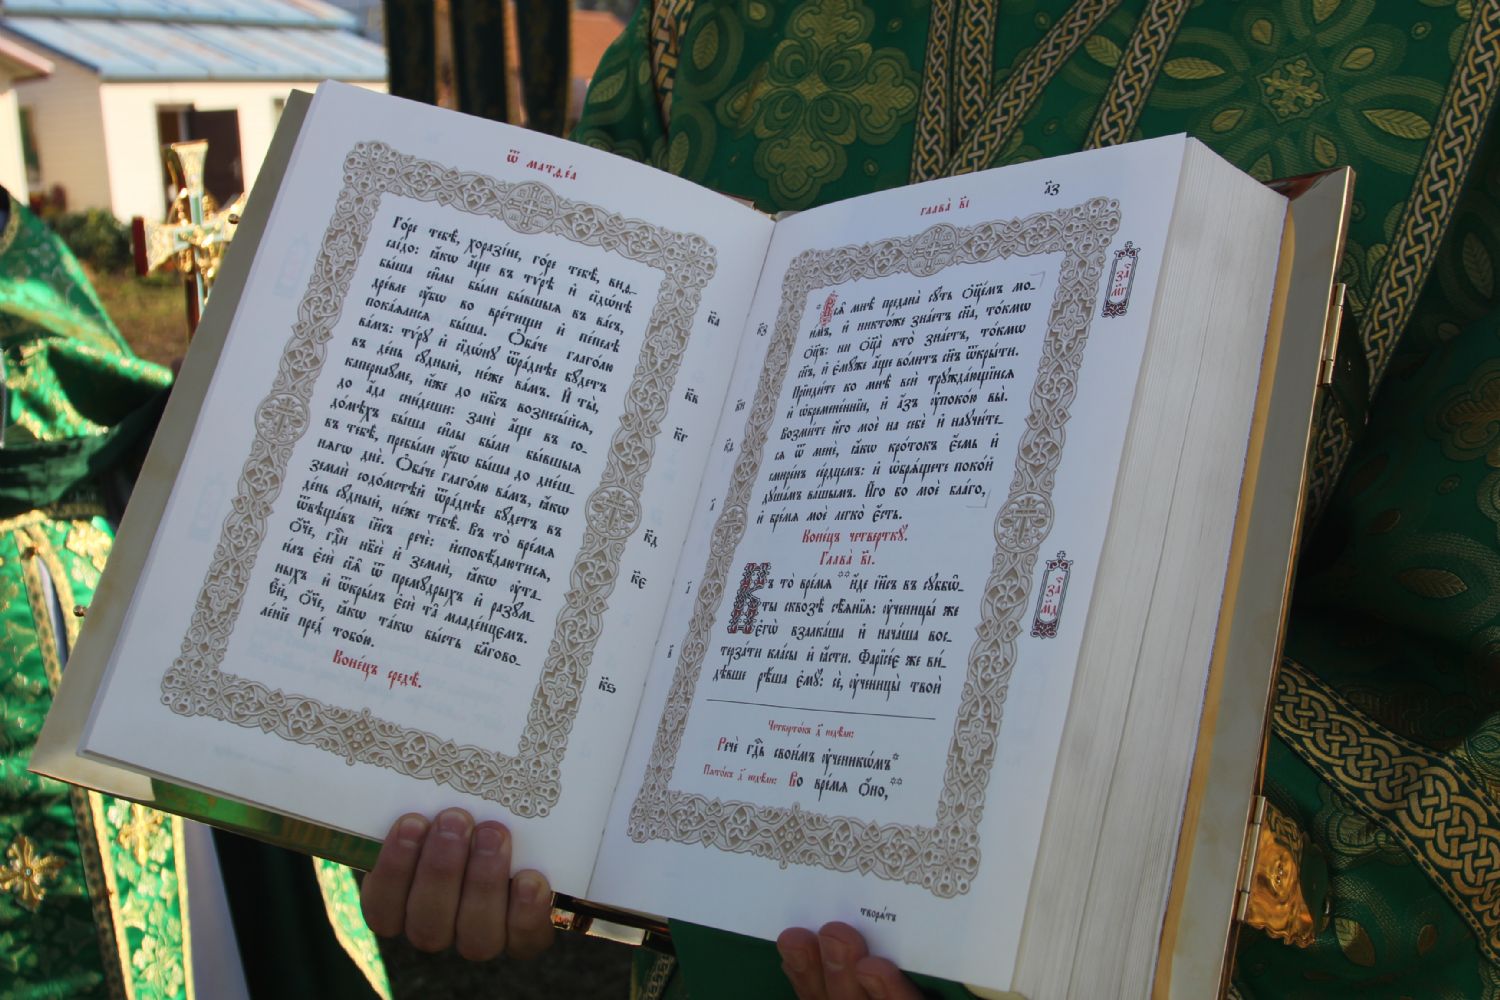 Ѿ МАТѲЕ́А
Го́ре тебѣ̀, хоразі́не, го́ре тебѣ̀, виѳ-
саі́до: ꙗ҆́кѡ а҆́ще въ тѵ́рѣ и҆ сїдѡ́нѣ
бы́ша си̑лы бы́ли бы́вшыѧ въ ва́съ,
дре́вле ᲂу҆́бѡ во вре́тищи и҆ пе́пелѣ
пока́ѧлисѧ бы́ша. Ѻ҆ба́че глаго́лю
ва́мъ: тѵ́рꙋ и҆ сїдѡ́нꙋ ѿра́днѣе бꙋ́детъ
въ де́нь сꙋ́дный, не́же ва́мъ. И҆ ты̀,
капернаꙋ́ме, и҆́же до нб҃съ вознесы́йсѧ,
до а҆́да сни́деши: занѐ а҆́ще въ со-
до́мѣхъ бы́ша си̑лы бы́ли бы́вшыѧ
въ тебѣ̀, пребы́ли ᲂу҆́бѡ бы́ша до дне́ш-
нѧгѡ днѐ. Ѻ҆ба́че глаго́лю ва́мъ, ꙗ҆́кѡ
землѝ содо́мстѣй ѿра́днѣе бꙋ́детъ въ
де́нь сꙋ́дный, не́же тебѣ̀. Въ то̀ вре́мѧ
ѿвѣща́въ і҆и҃съ речѐ: и҆сповѣ́даютисѧ,
ѻ҆́ч҃е, гдⷭ҇и нб҃сѐ и҆ землѝ, ꙗ҆́кѡ ᲂу҆та-
и́лъ є҆сѝ сїѧ̑ ѿ премꙋ́дрыхъ и҆ разꙋ́м-
ныхъ и҆ ѿкры́лъ є҆сѝ та̑ младе́нцємъ.
є҆́й, ѻ҆́ч҃е, ꙗ҆́кѡ та́кѡ бы́сть бл҃гово-
ле́нїе пред̾ тобо́ю.
Коне́цъ средѣ̀.
к҃а
к҃в
к҃г
к҃д
к҃є
к҃ѕ
ГЛАВА̀ в҃і
л҃з
к҃з
к҃и
к҃ѳ
л҃
Всѧ̑ мнѣ̀ пре́дана сꙋ́ть ѻ҆ц҃е́мъ мо-
и́мъ, и҆ никто́же зна́етъ сн҃а, то́кмѡ
ѻ҆ц҃ъ: ни ѻ҆ц҃а̀ кто̀ зна́етъ, то́кмѡ
сн҃ъ, и҆ є҆мꙋ́же а҆́ще во́литъ сн҃ъ ѿкры́ти.
Прїиди́те ко мнѣ̀ всѝ трꙋжда́ющїисѧ
и҆ ѡ҆бремене́ннїи, и҆ а҆́зъ ᲂу҆поко́ю вы̀.
Возми́те и҆́го моѐ на себѐ и҆ наꙋчи́те-
сѧ ѿ менѐ, ꙗ҆́кѡ кро́токъ є҆́смь и҆
смире́нъ се́рдцемъ: и҆ ѡ҆брѧ́щете поко́й
дꙋша́мъ ва́шымъ. И҆́го бо моѐ бла́го,
и҆ бре́мѧ моѐ легко̀ є҆́сть.
Коне́цъ четверткꙋ̀.
Глава̀ в҃і.
Въ то̀ вре́мѧ и҆́де і҆и҃съ въ сꙋббѡ-
ты сквозѣ̀ сѣ̑ѧнїѧ: ᲂу҆ченицы́ же
є҆гѡ̀ взалка́ша и҆ нача́ша вос-
терза́ти кла́сы и҆ ꙗ҆́сти. Фарїсе́є же ви́-
дѣвше рѣ́ша є҆мꙋ̀: сѐ, ᲂу҆ченицы̀ твоѝ
Четверто́ка д҃ недѣ́ли:
Речѐ гдⷭ҇ь свои̑мъ ᲂу҆ченикѡ́мъ*
Пѧто́ка д҃ недѣ́ли: Во вре́мѧ ѻ҆́но,**
творѧ́тъ
за҄
м҃г
за҄
м҃д